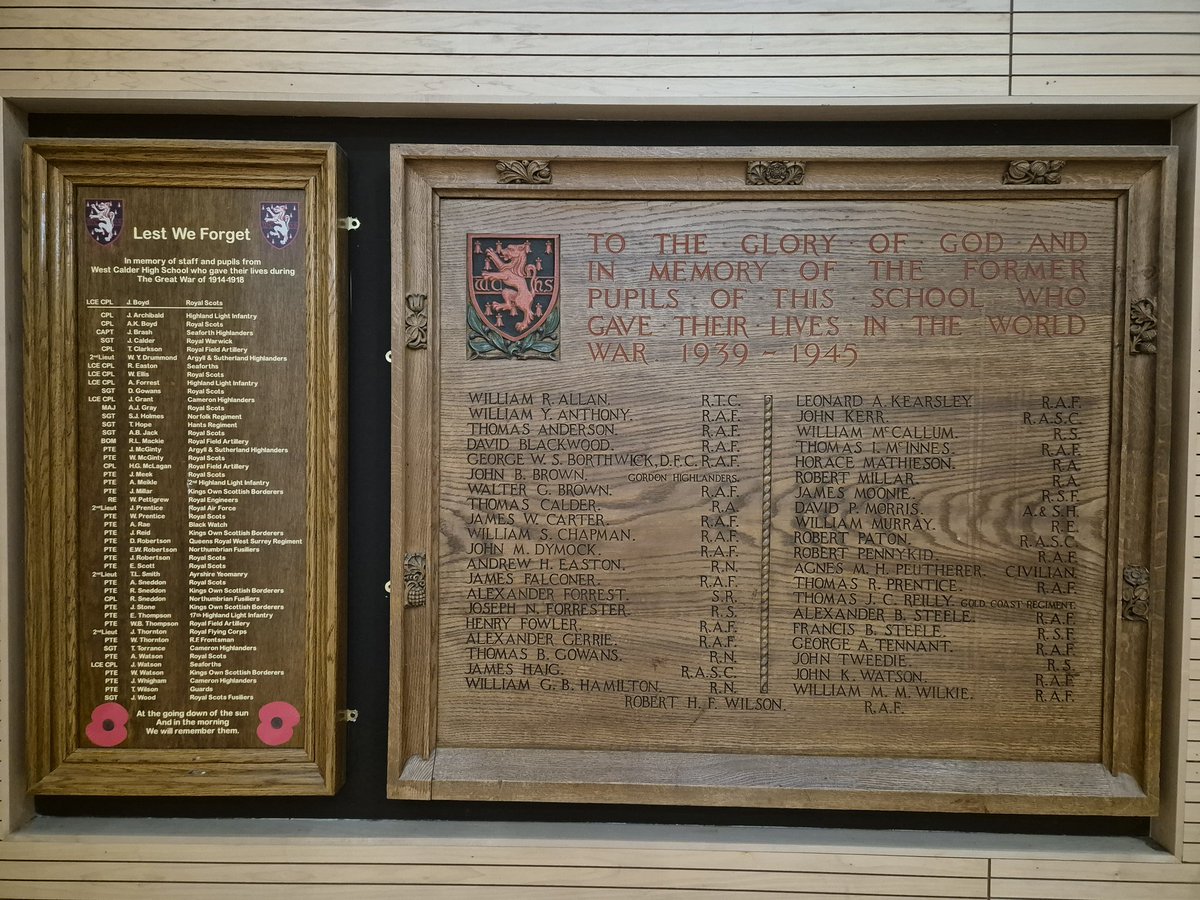 Lest We Forget
In memory of staff and pupils from
West Calder High School who gave their lives during
The Great War of 1914-1918
LCE CPL J. Boyd Royal Scots
CPL J. Archibald Highland Light Infantry
CPL A.K. Boyd Royal Scots
CAPT J. Brash Seaforth Highlanders
SGT J. Calder Royal Warwick
CPL T. Clarkson Royal Field Artillery
2nd Lieut W. Y. Drummond Argyll & Sutherland Highlanders
LCE CPL R. Easton Seaforths
LCE CPL W. Ellis Royal Scots
LCE CPL A. Forrest Highland Light Infantry
SGT D. Gowans Royal Scots
LCE CPL J. Grant Cameron Highlanders
MAJ A.J. Gray Royal Scots
SGT S.J. Holmes Norfolk Regiment
SGT T. Hope Hants Regiment
SGT A.B. Jack Royal Scots
BOM R.L. Mackie Royal Field Artillery
PTE J. McGinty Argyll & Sutherland Highlanders
PTE W. McGinty Royal Scots
CPL H.G. McLagan Royal Field Artillery
PTE J. Meek Royal Scots
PTE A. Meikle 2nd Highland Light Infantry
PTE J. Millar Kings Own Scottish Borderers
RE W. Pettigrew Royal Engineers
2nd Lieut J. Prentice Royal Air Force
PTE W. Prentice Royal Scots
PTE A. Rae Black Watch
PTE J. Reid Kings Own Scottish Borderers
PTE D. Robertson Queens Royal West Surrey Regiment
PTE E.W. Robertson Northumbrian Fusiliers
PTE J. Robertson Royal Scots
PTE E. Scott Royal Scots
2nd Lieut T.L. Smith Ayrshire Yeomanry
PTE A. Sneddon Royal Scots
PTE R. Sneddon Kings Own Scottish Borderers
CPL R. Sneddon Northumbrian Fusiliers
PTE J. Stone Kings Own Scottish Borderers
PTE E. Thompson 17th Highland Light Infantry
PTE W.B. Thompson Royal Field Artillery
2nd Lieut J. Thornton Royal Flying Corps
PTE W. Thornton R.F Frontsman
SGT T. Torrance Cameron Highlanders
PTE A. Watson Royal Scots
LCE CPL J. Watson Seaforths
PTE W. Watson Kings Own Scottish Borderers
PTE J. Whigham Cameron Highlanders
PTE T. Wilson Guards
SGT J. Wood Royal Scots Fusiliers
At the going down of the sun
And in the morning
We will remember them.
W C H S
TO THE GLORY OF GOD AND
IN MEMORY OF THE FORMER
PUPILS OF THIS SCHOOL WHO
GAVE THEIR LIVES IN THE WORLD
WAR 1939 - 1945
WILLIAM R. ALLAN. R.T.C.
WILLIAM Y. ANTHONY. R.A.F.
THOMAS ANDERSON. R.A.F.
DAVID BLACKWOOD. R.A.F.
GEORGE W. S. BORTHWICK, D.F.C. R.A.F.
JOHN B. BROWN. GORDON HIGHLANDERS.
WALTER G. BROWN. R.A.F.
THOMAS CALDER. R.A.
JAMES W. CARTER. R.A.F.
WILLIAM S. CHAPMAN. R.A.F.
JOHN M. DYMOCK. R.A.F.
ANDREW H. EASTON. R.N.
JAMES FALCONER. R.A.F.
ALEXANDER FORREST. S.R.
JOSEPH N. FORRESTER. R.S.
HENRY FOWLER. R.A.F.
ALEXANDER GERRIE. R.A.F.
THOMAS B. GOWANS. R.N.
JAMES HAIG. R.A.S.C.
WILLIAM G. B. HAMILTON. R.N.
LEONARD A. KEARSLEY R.A.F.
JOHN KERR. R.A.S.C.
WILLIAM McCALLUM. R.S.
THOMAS I. McINNES. R.A.F.
HORACE MATHIESON. R.A.
ROBERT MILLAR. R.A.
JAMES MOONIE. R.S.F.
DAVID P. MORRIS. A.& S.H.
WILLIAM MURRAY. R.E.
ROBERT PATON. R.A.S.C.
ROBERT PENNYKID. R.A.F.
AGNES M. H. PEUTHERER CIVILIAN.
THOMAS R. PRENTICE. R.A.F.
THOMAS J. C. REILLY. GOLD COAST REGIMENT.
ALEXANDER B. STEELE. R.A.F.
FRANCIS B. STEELE. R.S.F.
GEORGE A. TENNANT. R.A.F.
JOHN TWEEDIE. R.S.
JOHN K. WATSON. R.A.F.
WILLIAM M. M. WILKIE. R.A.F.
ROBERT H. F. WILSON. R.A.F.